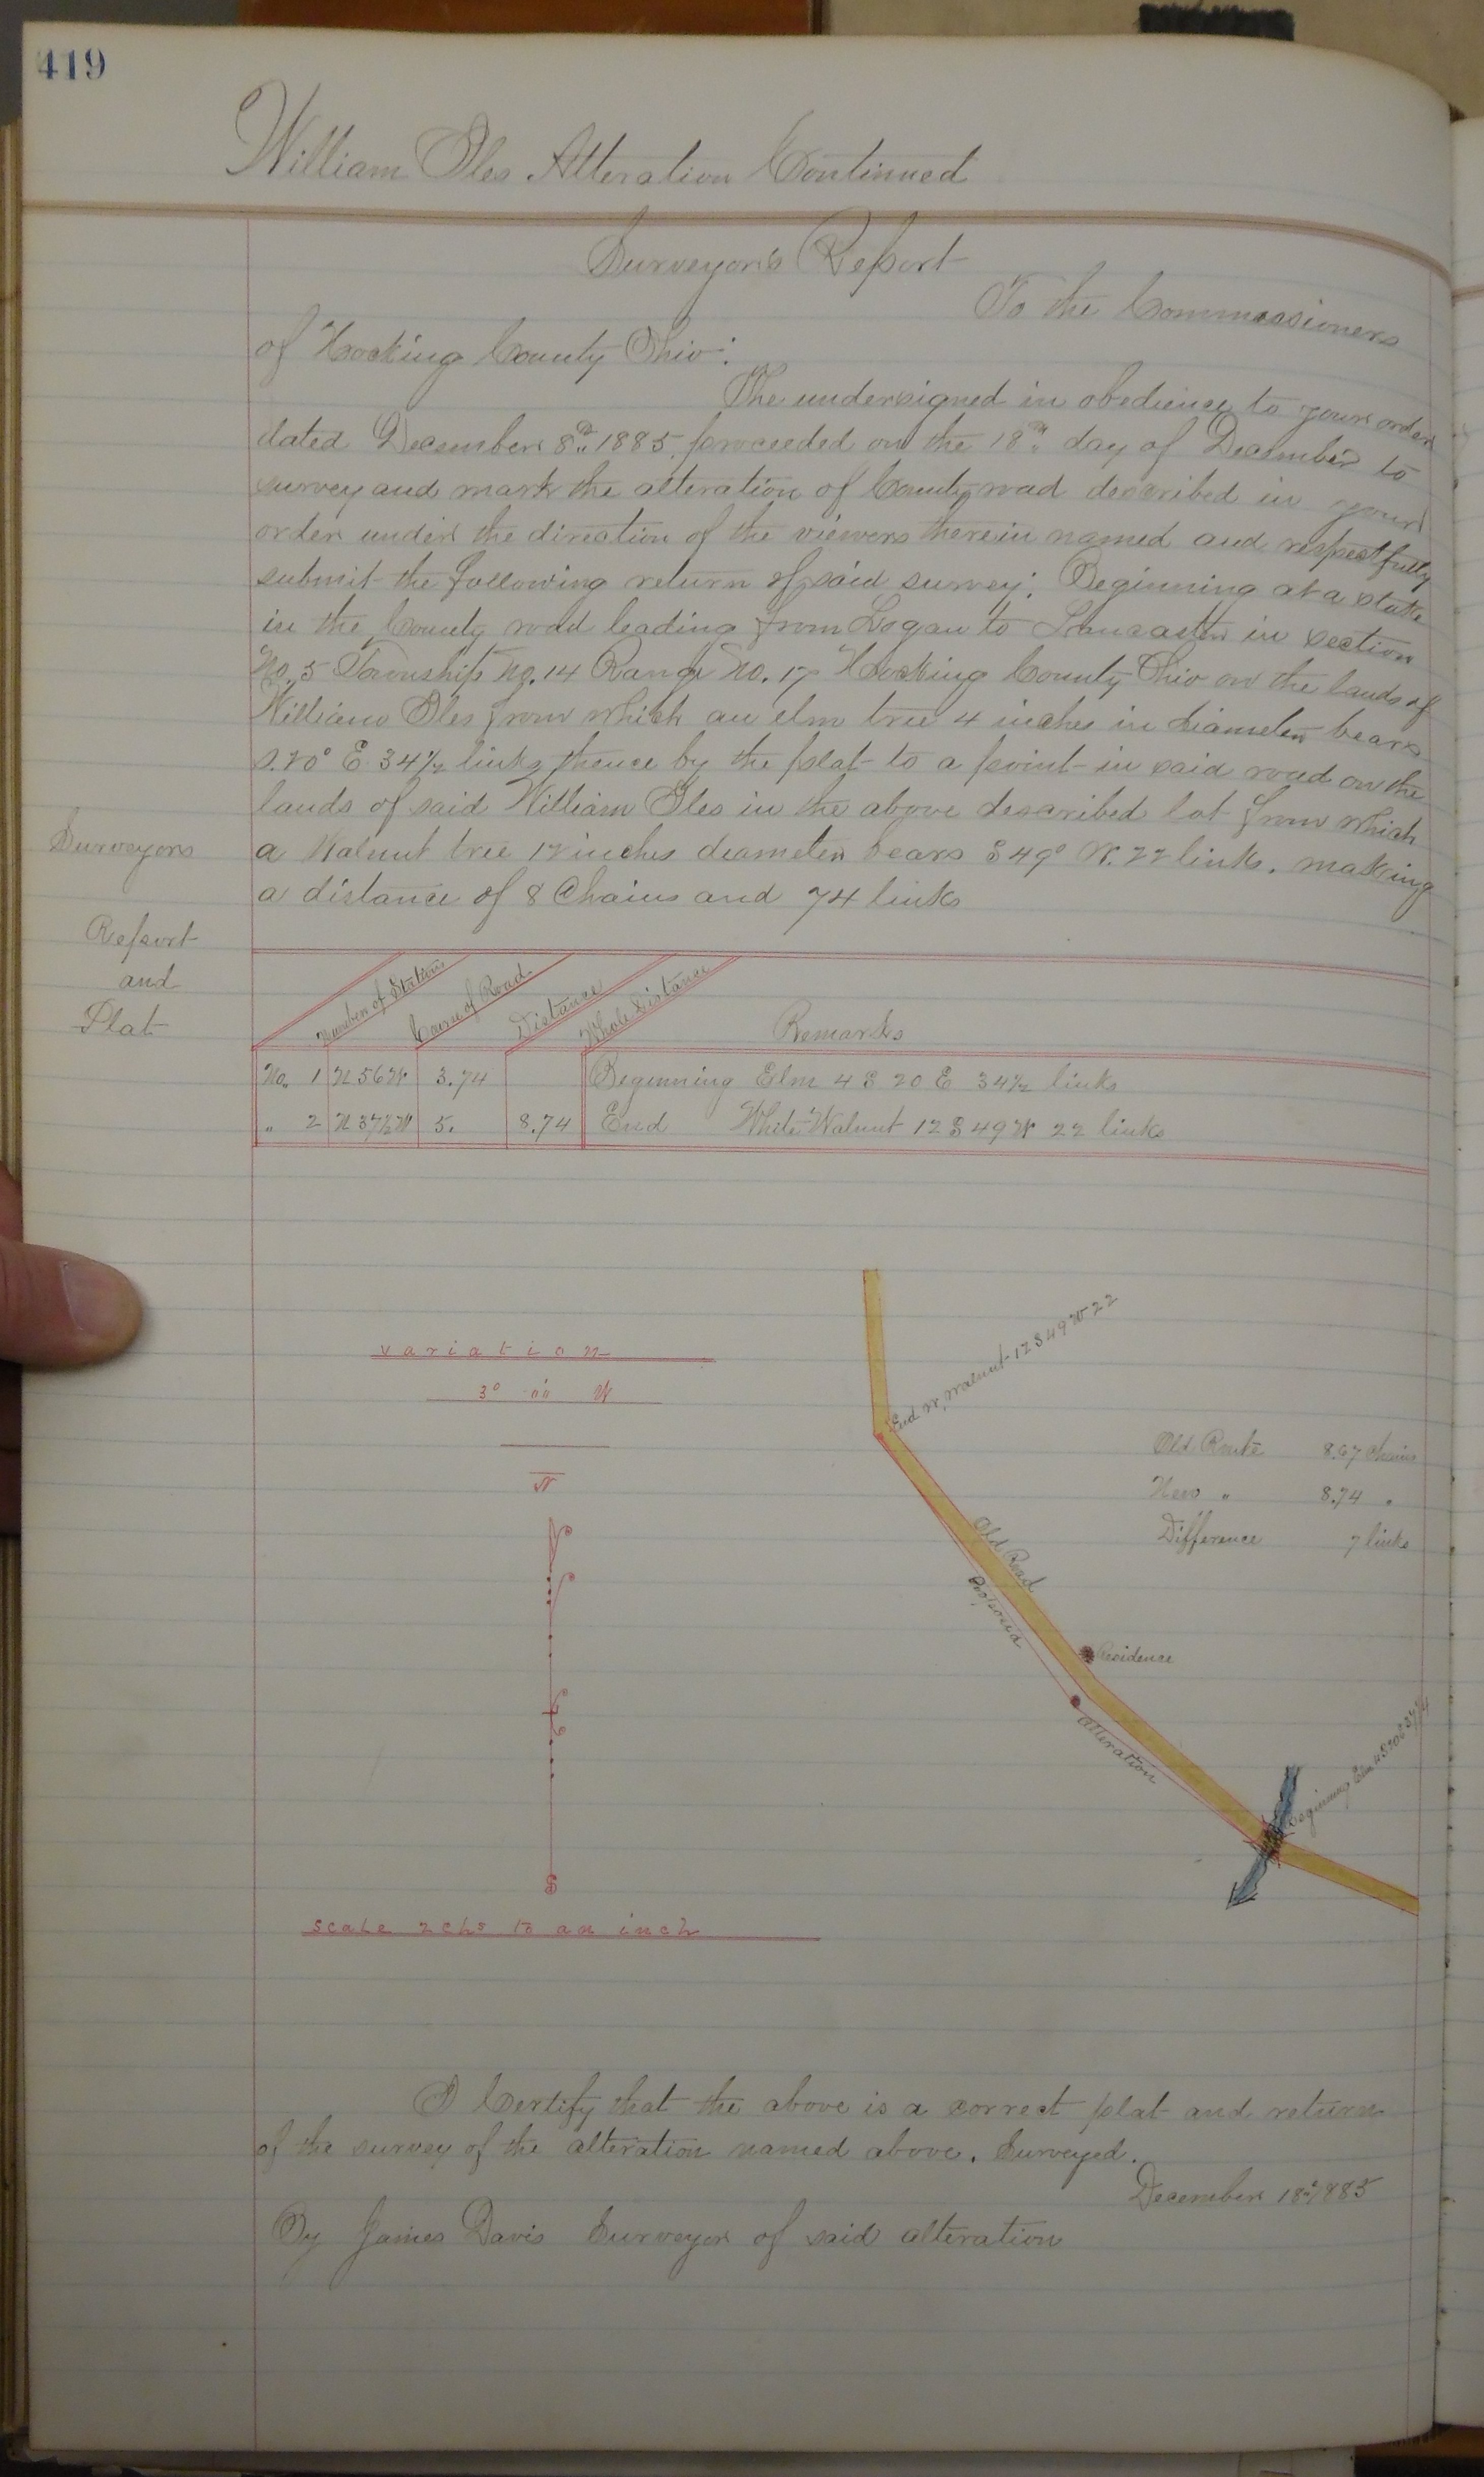 419
William Iles Alteration Continued
Surveyor's Report
To the Commissioners
of Hocking County Ohio:
The undersigned in obedience to your order
dated December 8th 1885, proceeded on the 18th day of December to
survey and mark the alteration of County road described in your
order under the direction of the viewers therein named and respectfully
submit the following return of said survey; Beginning at a stake
in the County road leading from Logan to Lancaster in section
No. 5 Township No. 14 Range No. 17 Hocking County Ohio on the lands of
William Iles from which an elm tree 4 inches in diameter bears
S. 20° E. 34 1/2 links thence by the plat to a point in said road on the
lands of said William Iles in the above described lot from which
a Walnut tree 12 inches diameter bears S 49° W. 22 links. making
a distance of 8 Chains and 74 links
Surveyors
Report
and
Plat
Number of Stations Course of Road Distance Whole Distance Remarks
No. 1 N 56 W 3.74 Beginning Elm 4 S 20 E 34 1/2 links
" 2 N 37 1/2 W 5. 8.74 End White Walnut 12 S 49 W 22 links
variation
3° W
N
S
scale 2 chs to an inch
End W. Walnut 12 S 49 W 22
Old Route 8.67 Chains
New " 8.74 "
Difference 7 links
Old Road
Proposed
Residence
alteration
Beginning Elm 4 S 20 E
I Certify that the above is a correct plat and return
of the survey of the alteration named above. Surveyed.
December 18th 1885
By James Davis Surveyor of said alteration